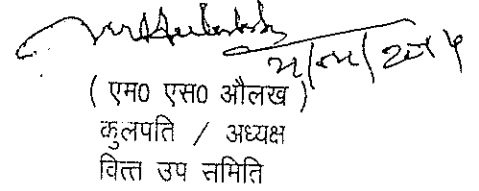 ( एम0 एस0 औलख )
कुलपति / अध्यक्ष
वित्त उप समिति